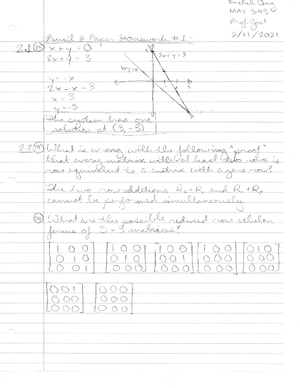 MAT 343
Prof. Joel
2/11/2021
Pencil & Paper Homework #1
2.1 x + y = 0
2x + y = 3
y = -x
2x - x = 3
x = 3
y = -3
The system has one
solution at (3, -3)
2.2 What is wrong with the following "proof"
that every matrix with at least two rows is
row equivalent to a matrix with a zero row?
The two row additions R2 + R1 and R1 + R2
cannot be performed simultaneously.
What are the possible reduced row echelon
forms of 3 - 3 matrices?
[1 0 0] [1 0 0] [1 0 0] [1 0 0] [0 1 0]
[0 1 0] [0 1 0] [0 0 1] [0 0 0] [0 0 1]
[0 0 1] [0 0 0] [0 0 0] [0 0 0] [0 0 0]
[0 0 1] [0 0 0]
[0 0 0] [0 0 0]
[0 0 0] [0 0 0]